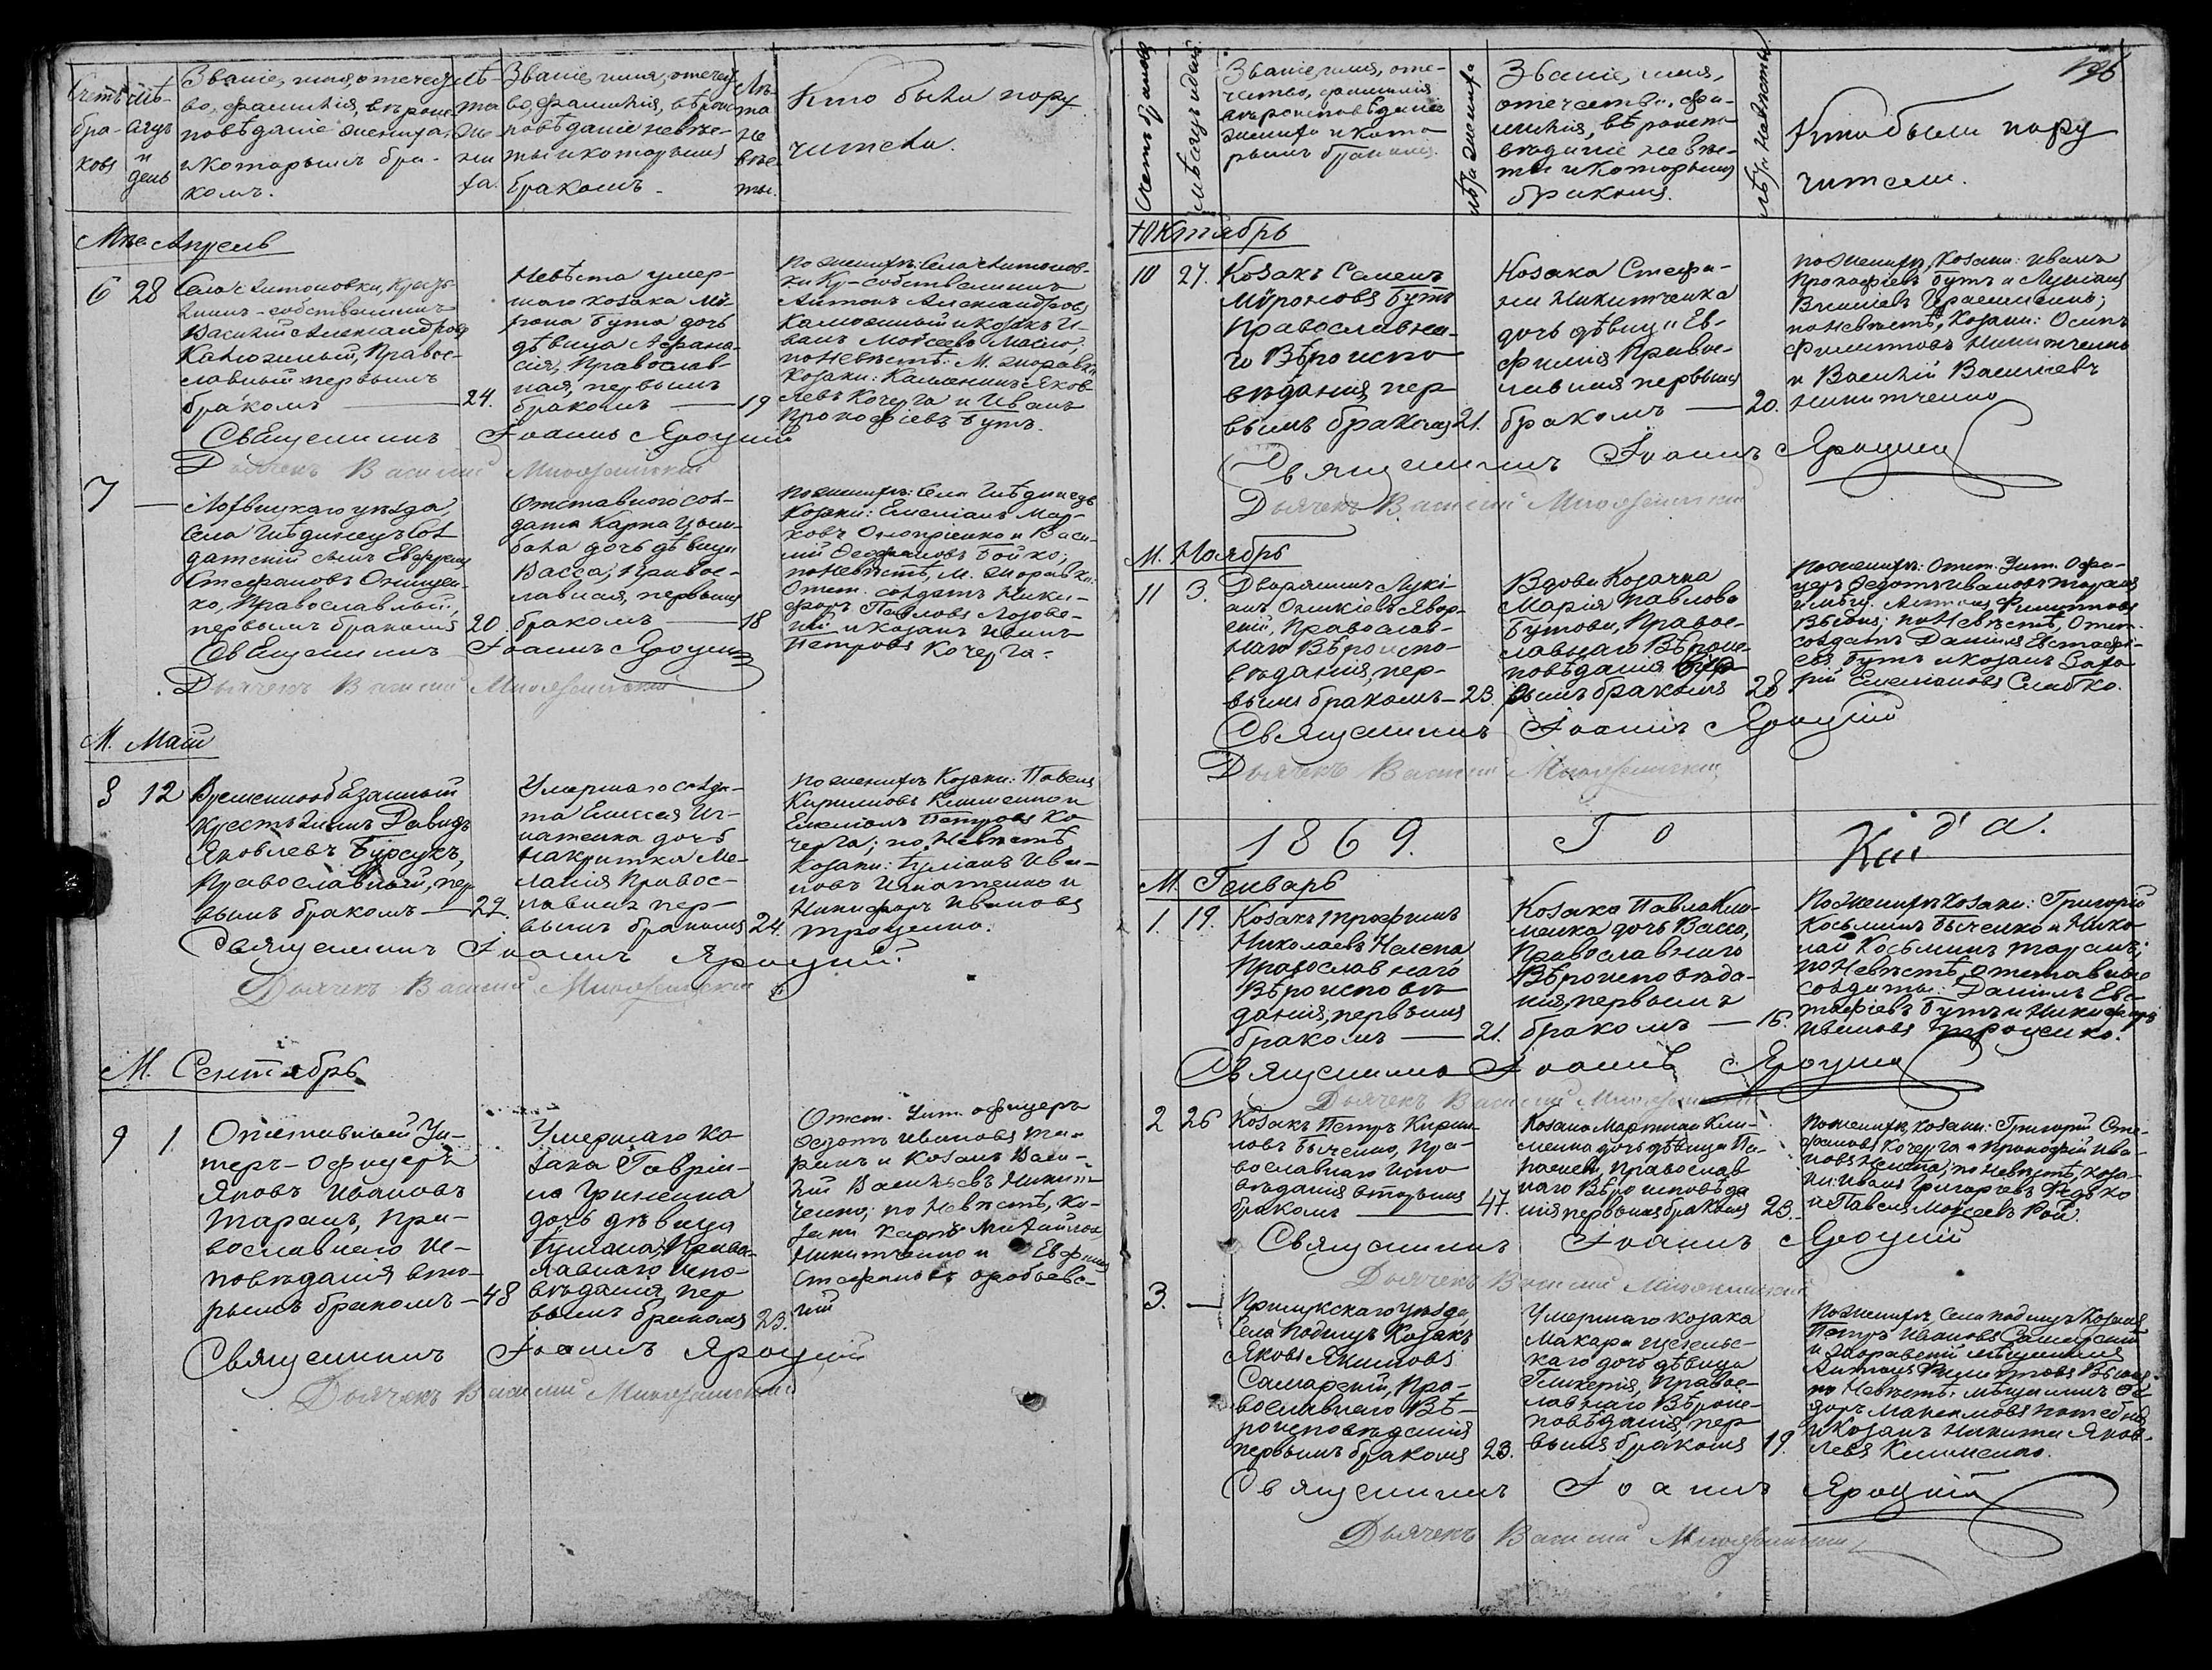 Счетъ бра-ковъ
Мѣ-сяцъ и день
Званіе, имя, отечест-
во, фамилія, вѣроис-
повѣданіе жениха,
и которымъ бра-
комъ.
Лѣ-та же-ни-ха.
Званіе, имя, отечест-
во, фамилія, вѣроис-
повѣданіе невѣс-
ты и которымъ
бракомъ.
Лѣ-та не-вѣс-ты.
Кто были пору
чители.
Мца Апрель
6
28
Села Антоновки, Кресть-
янинъ-собственникъ
Василій Александровъ
Калюжный, Правос-
лавный первымъ
бракомъ
24.
Невѣста умер-
шаго козака Мѵ-
рона Бута дочь
дѣвица Афана-
сія, Православ-
ная, первымъ
бракомъ
19
По женихѣ: Села Антонов-
ки Кр-собственникъ
Антонъ Александровъ
Калюжный и козакъ И-
ванъ Моѵсеевъ
по Невѣстѣ: М. Журавки
Козаки: Яков-
левъ Кочерга и Иванъ
Прокофіевъ Бутъ.
Священникъ Іоаннъ Яроцкій
Дьячекъ Василій
7
—
Лохвицкаго уѣзда,
Села Сол
датскій сынъ
Стефановъ Онищен-
ко, Православный,
первымъ бракомъ
20.
Отставного сол-
дата Карпа
дочь дѣвица
Васса, Правос-
лавная, первымъ
бракомъ
18
По женихѣ: Села
Козаки: Емеліанъ Мар-
ковъ и Васи-
лій Бойко;
по Невѣстѣ, М. Журавки:
Отст. солдатъ Ники-
форъ Павловъ Лозове-
цкій и козакъ Иванъ
Петровъ Кочерга.
Священникъ Іоаннъ Яроцкій
Дьячекъ Василій
М. Маій
8
12
Временнообязанный
Крестьянинъ Давидъ
Яковлевъ Бурсукъ,
Православный, пер
вымъ бракомъ
22.
Умершаго солда-
та Елисея Иг-
натенка дочь
накритка Ме-
ланія Правос-
лавная пер-
вымъ бракомъ
24.
По женихѣ Козаки: Павелъ
Кириловъ Клименко и
Емеліанъ Петровъ Ко
черга; по Невѣстѣ
Козаки: Ива-
новъ Игнатенко и
Никифоръ Ивановъ
Троценко.
Священникъ Іоаннъ Яроцкій
Дьячекъ Василій
М. Сентябрь
9
1
Отставный Ун-
теръ-Офицеръ
Яковъ Ивановъ
Таранъ, Пра-
вославнаго Ис-
повѣданія вто-
рымъ бракомъ
48
Умершаго ко
зака Гавріи-
ла Гриненка
дочь дѣвица
Правос-
лавнаго испо-
вѣданія, пер
вымъ бракомъ
23.
Отст. Унт. офицеръ
Федотъ Ивановъ Та-
ранъ и Козакъ Васи-
лій Васильевъ Никит-
ченко; по Невѣстѣ, Ко-
заки Карпъ Михайловъ
Никитченко и
Стефановъ
Священникъ Іоаннъ Яроцкій
Дьячекъ Василій
Счетъ браковъ
Мѣсяцъ и день
Званіе, имя, оте-
чество, фамилія
вѣроисповѣданіе
жениха и кото
рымъ бракомъ.
Лѣта жениха
Званіе, имя,
отечество, фа-
милія, вѣроиспо-
вѣданіе невѣс-
ты и которымъ
бракомъ.
Лѣта невѣсты
Кто были пору
чители.
Октябрь
10
27.
Козакъ Семенъ
Мѵроновъ Бутъ
Православна-
го Вѣроиспо
вѣданія, пер
вымъ бракомъ
21.
Козака Стефа-
на Никитченка
дочь дѣвица Ев-
фимія Правос-
лавная первымъ
бракомъ
20.
По Женихѣ, Козаки: Иванъ
Прокофіевъ Бутъ и
по Невѣстѣ, Козаки: Осипъ
Филиповъ Никитченко
и Василій Васильевъ
Никитченко
Священникъ Іоаннъ Яроцкій
Дьячекъ Василій
М. Ноябрь
11
3.
Дворянинъ Лукі-
анъ Явор-
скій, Православ-
наго Вѣроиспо-
вѣданія, пер-
вымъ бракомъ
23.
Вдова Козачка
Марія Павлова
Бутова, Правос-
лавнаго Вѣроис-
повѣданія
вымъ бракомъ
28
По женихѣ: Отст. Унт. Офи-
церъ Федотъ Ивановъ Таранъ
и Антонъ Филиповъ
по Невѣстѣ, Отст.
солдатъ Даніилъ Евстафі-
евъ Бутъ и козакъ Заха
рій Емеліановъ Слабко.
Священникъ Іоаннъ Яроцкій
Дьячекъ Василій
1869. Го да.
М. Генварь
1.
19.
Козакъ Трофимъ
Николаевъ Налепа,
Православнаго
Вѣроисповѣ
данія, первымъ
бракомъ
21.
Козака Павла Кли-
менка дочь Васса,
Православнаго
Вѣроисповѣда-
нія, первымъ
бракомъ
16.
По Женихѣ Козаки: Григорій
Косьминъ Быченко и Нико-
лай Косьминъ Таранъ;
по Невѣстѣ, отставные
солдаты: Даніилъ Евс-
тафіевъ Бутъ и Никифоръ
Ивановъ Троценко.
Священникъ Іоаннъ Яроцкій
Дьячекъ Василій
2
26
Козакъ Петръ Кири-
ловъ Быченко, Пра-
вославнаго Испо
вѣданія вторымъ
бракомъ
47.
Козака Мартина Кли-
менка дочь дѣвица Па-
раскева, Православ
наго Вѣроисповѣда
нія первымъ бракомъ
23.
По женихѣ, козаки: Григорій Сте-
фановъ Кочерга и Прокофій Ива-
новъ Налепа; по Невѣстѣ, Коза-
ки: Иванъ Григорьевъ Редько
и Павелъ Моѵсеевъ Рой.
Священникъ Іоаннъ Яроцкій
Дьячекъ Василій
3.
—
Прилукскаго уѣзда,
Села Подищъ Козакъ
Яковъ Якимовъ
Самарскій, Пра-
вославнаго Вѣ-
роисповѣданія
первымъ бракомъ
23.
Умершаго козака
Макара
каго дочь дѣвица
Гликерія, Правос-
лавнаго Вѣроис-
повѣданія, пер
вымъ бракомъ
19.
По Женихѣ, Села Подищъ Козакъ
Петръ Ивановъ Самарскій
и Журавскій мѣщанинъ
Антонъ Филиповъ
по Невѣстѣ: мѣщанинъ Фе-
доръ Максимовъ
и Козакъ Никита Яков-
левъ Клименко.
Священникъ Іоаннъ Яроцкій
Дьячекъ Василій